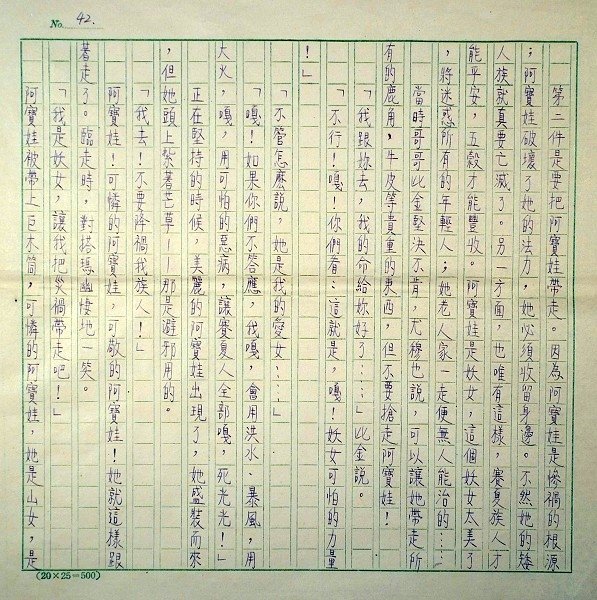 No. 42.
第二件是要把阿寶娃帶走。因為阿寶娃是慘禍的根源
；阿寶娃破壞了她的法力，她必須收留身邊。不然她的矮
人族就真要亡滅了。另一方面，也唯有這樣，賽夏族人才
能平安，五穀才能豐收。阿寶娃是妖女，這個妖女太美了
，將迷惑所有的年輕人；她老人家一走便無人能治的……
當時哥哥比金堅決不肯，尤穆也說，可以讓她帶走所
有的鹿角，牛皮等貴重的東西，但不要搶走阿寶娃！
「我跟妳去，我的命給妳好了……」比金說。
「不行！嘎！你們看：這就是，嘎！妖女可怕的力量
！」
「不管怎麼說，她是我的愛女……」
「嘎！如果你們不答應，我嘎，會用洪水、暴風，用
大火，嘎，用可怕的惡病，讓賽夏人全部嘎，死光光！」
正在堅持的時候，美麗的阿寶娃出現了，她盛裝而來
，但她頭上繫著芒草——那是避邪用的。
「我去！不要降禍我族人！」
阿寶娃！可憐的阿寶娃，可敬的阿寶娃！她就這樣跟
著走了。臨走時，對塔瑪幽悽地一笑。
「我是妖女，讓我把災禍帶走吧！」
阿寶娃被帶上巨木筒，可憐的阿寶娃，她是山女，是
(20×25=500)